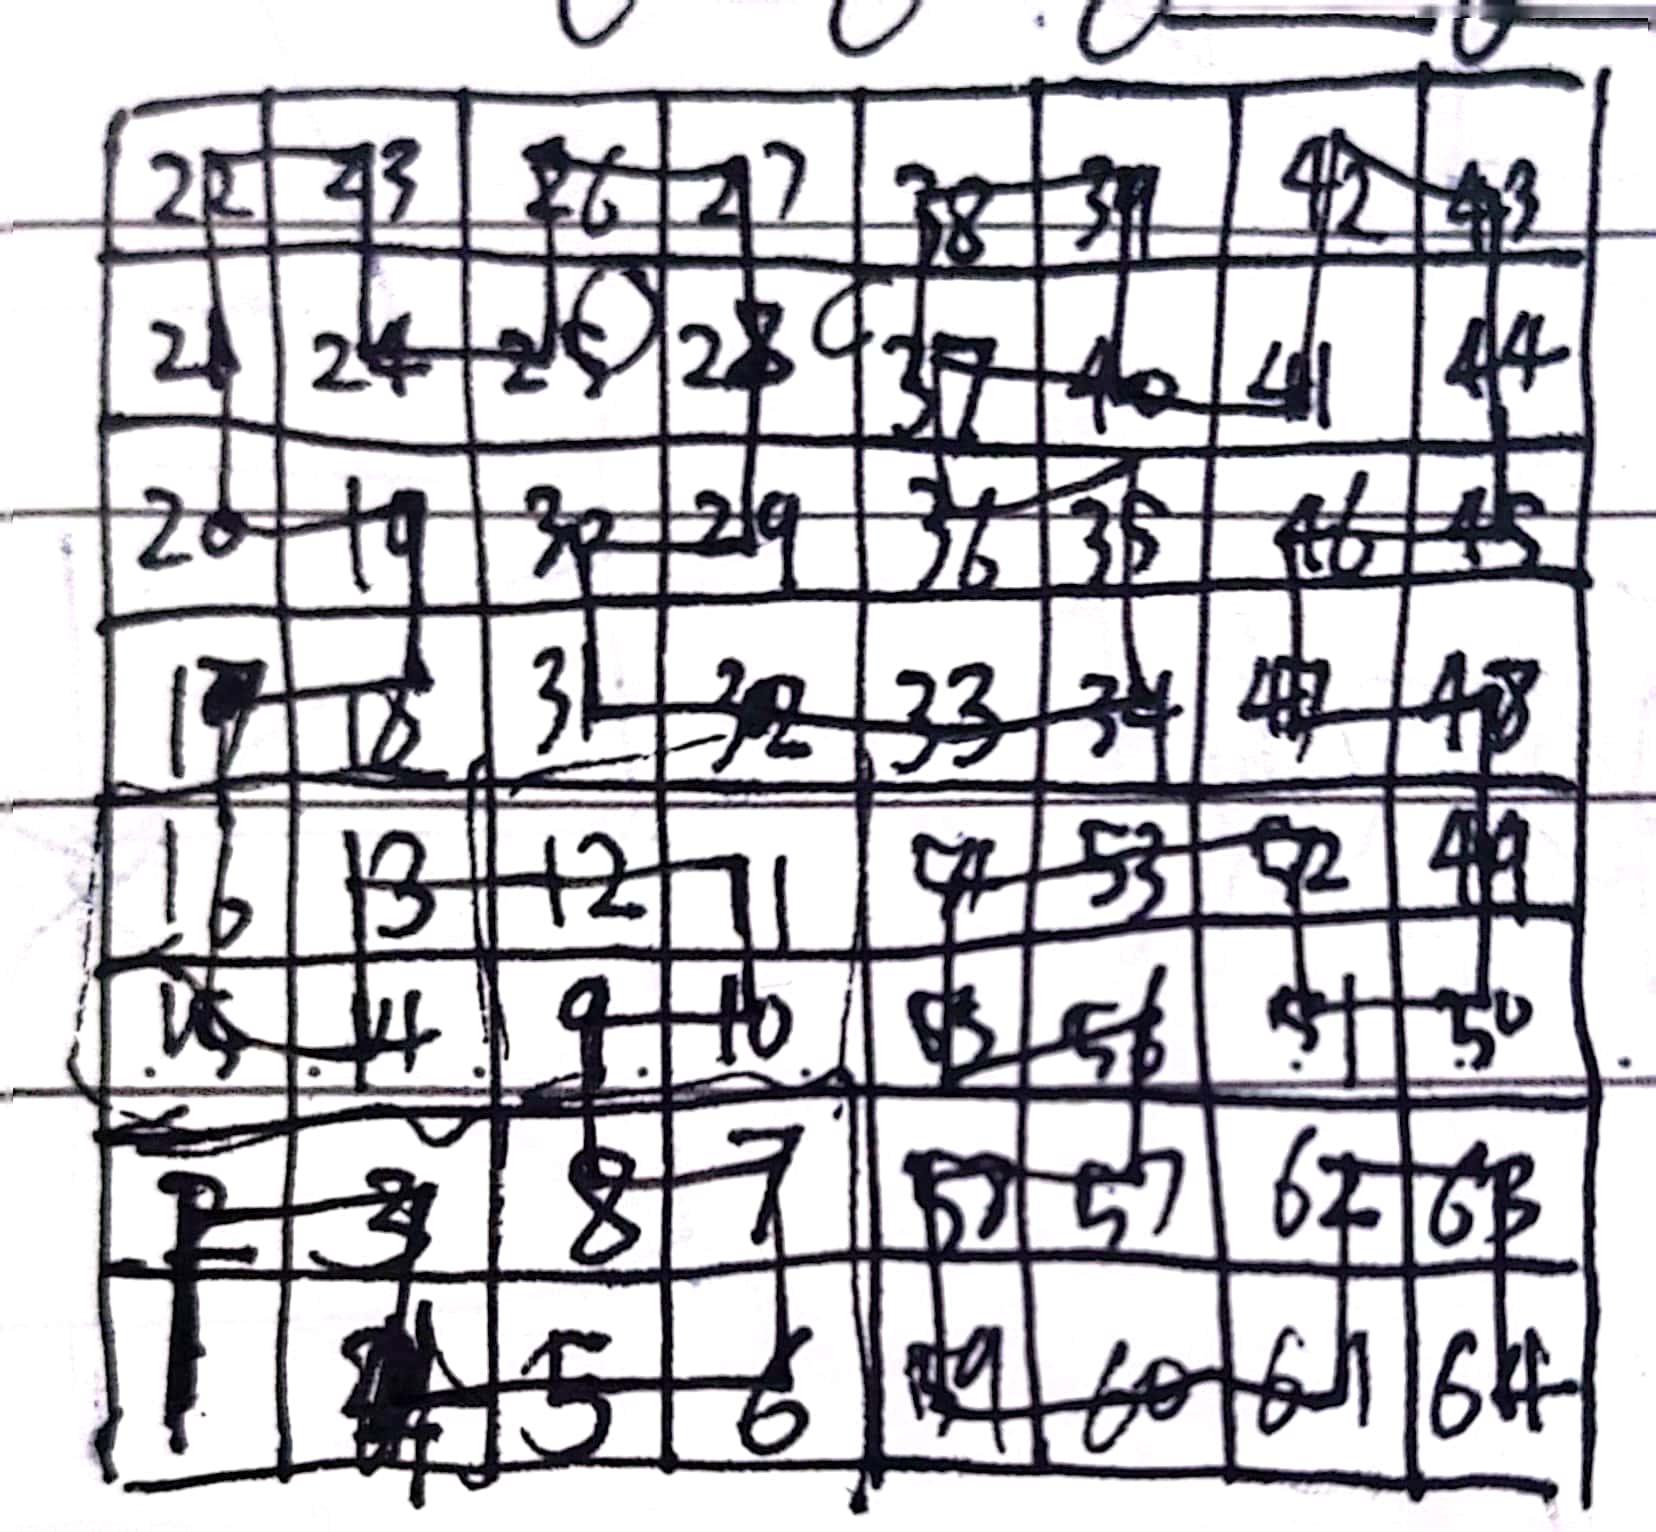 22 23 26 27 38 39 42 43
21 24 25 28 37 40 41 44
20 19 30 29 36 35 46 45
17 18 31 32 33 34 47 48
16 13 12 11 54 53 52 49
15 14 9 10 55 56 51 50
2 3 8 7 57 62 63
1 4 5 6 59 60 61 64